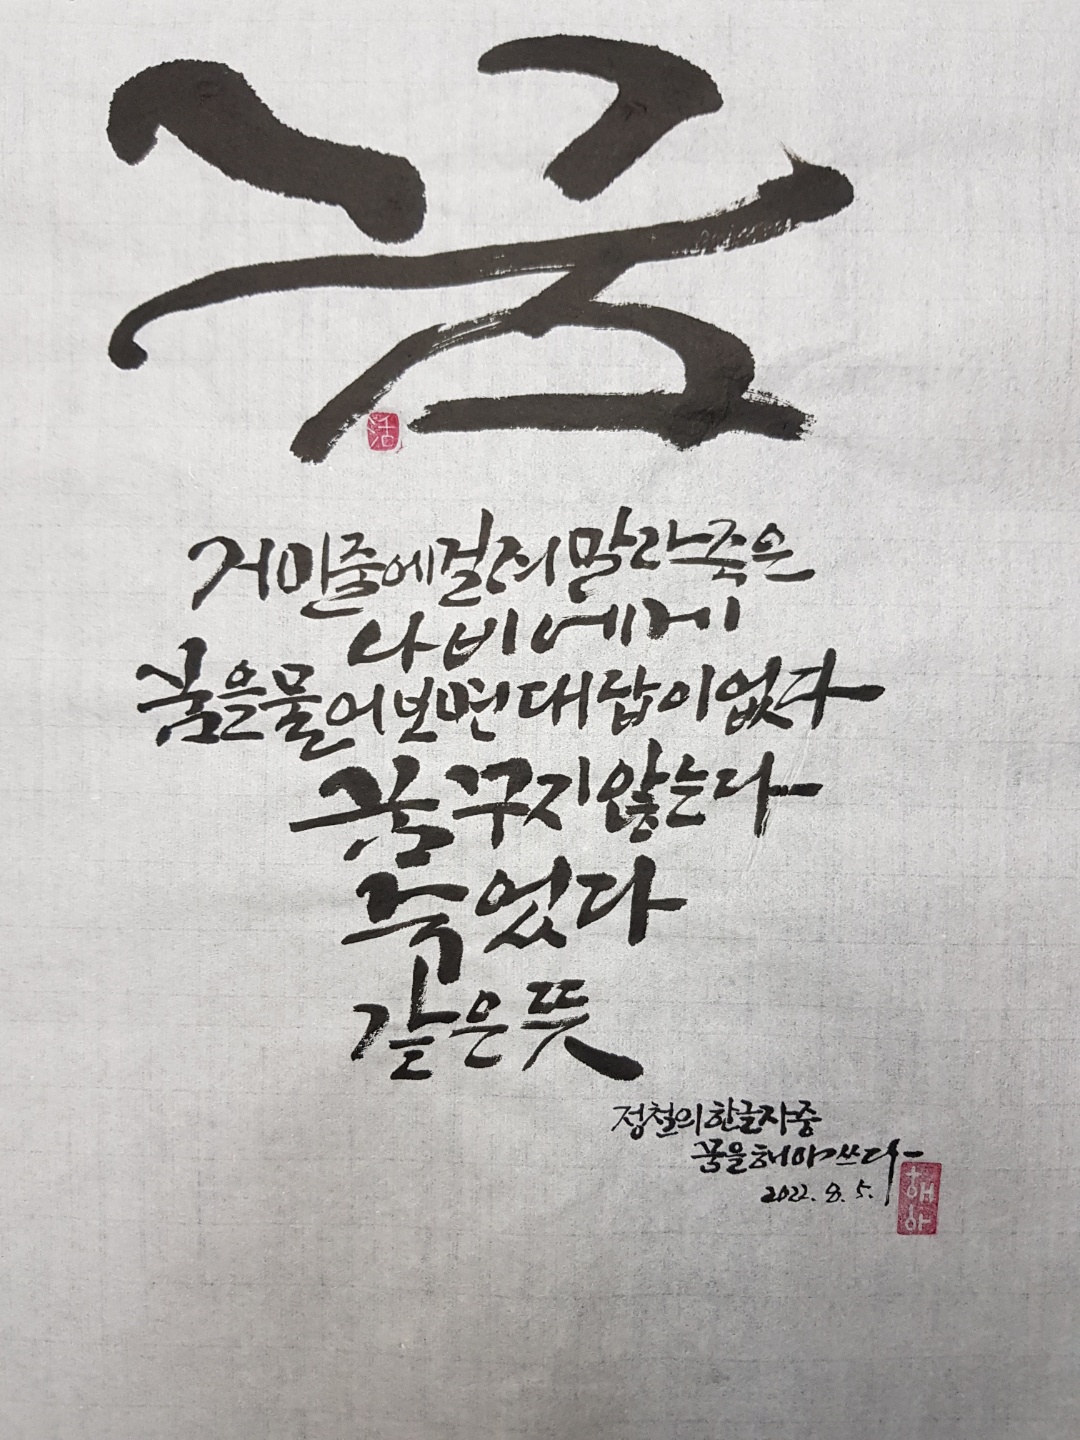 꿈
活
거미줄에걸려말라죽은
나비에게
꿈을물어보면대답이없다
꿈꾸지않는다
죽었다
같은뜻
정철의한글자중
꿈을해아쓰다
2022. 8. 5.
해아